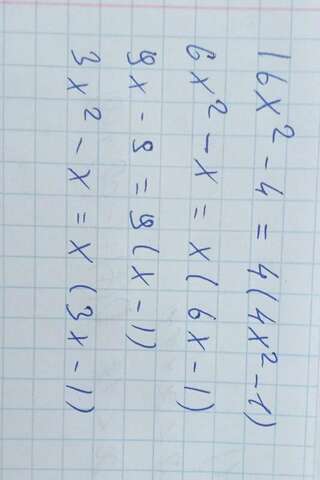 16x² - 4 = 4(4x² - 1)
6x² - x = x(6x - 1)
9x - 9 = 9(x - 1)
3x² - x = x(3x - 1)